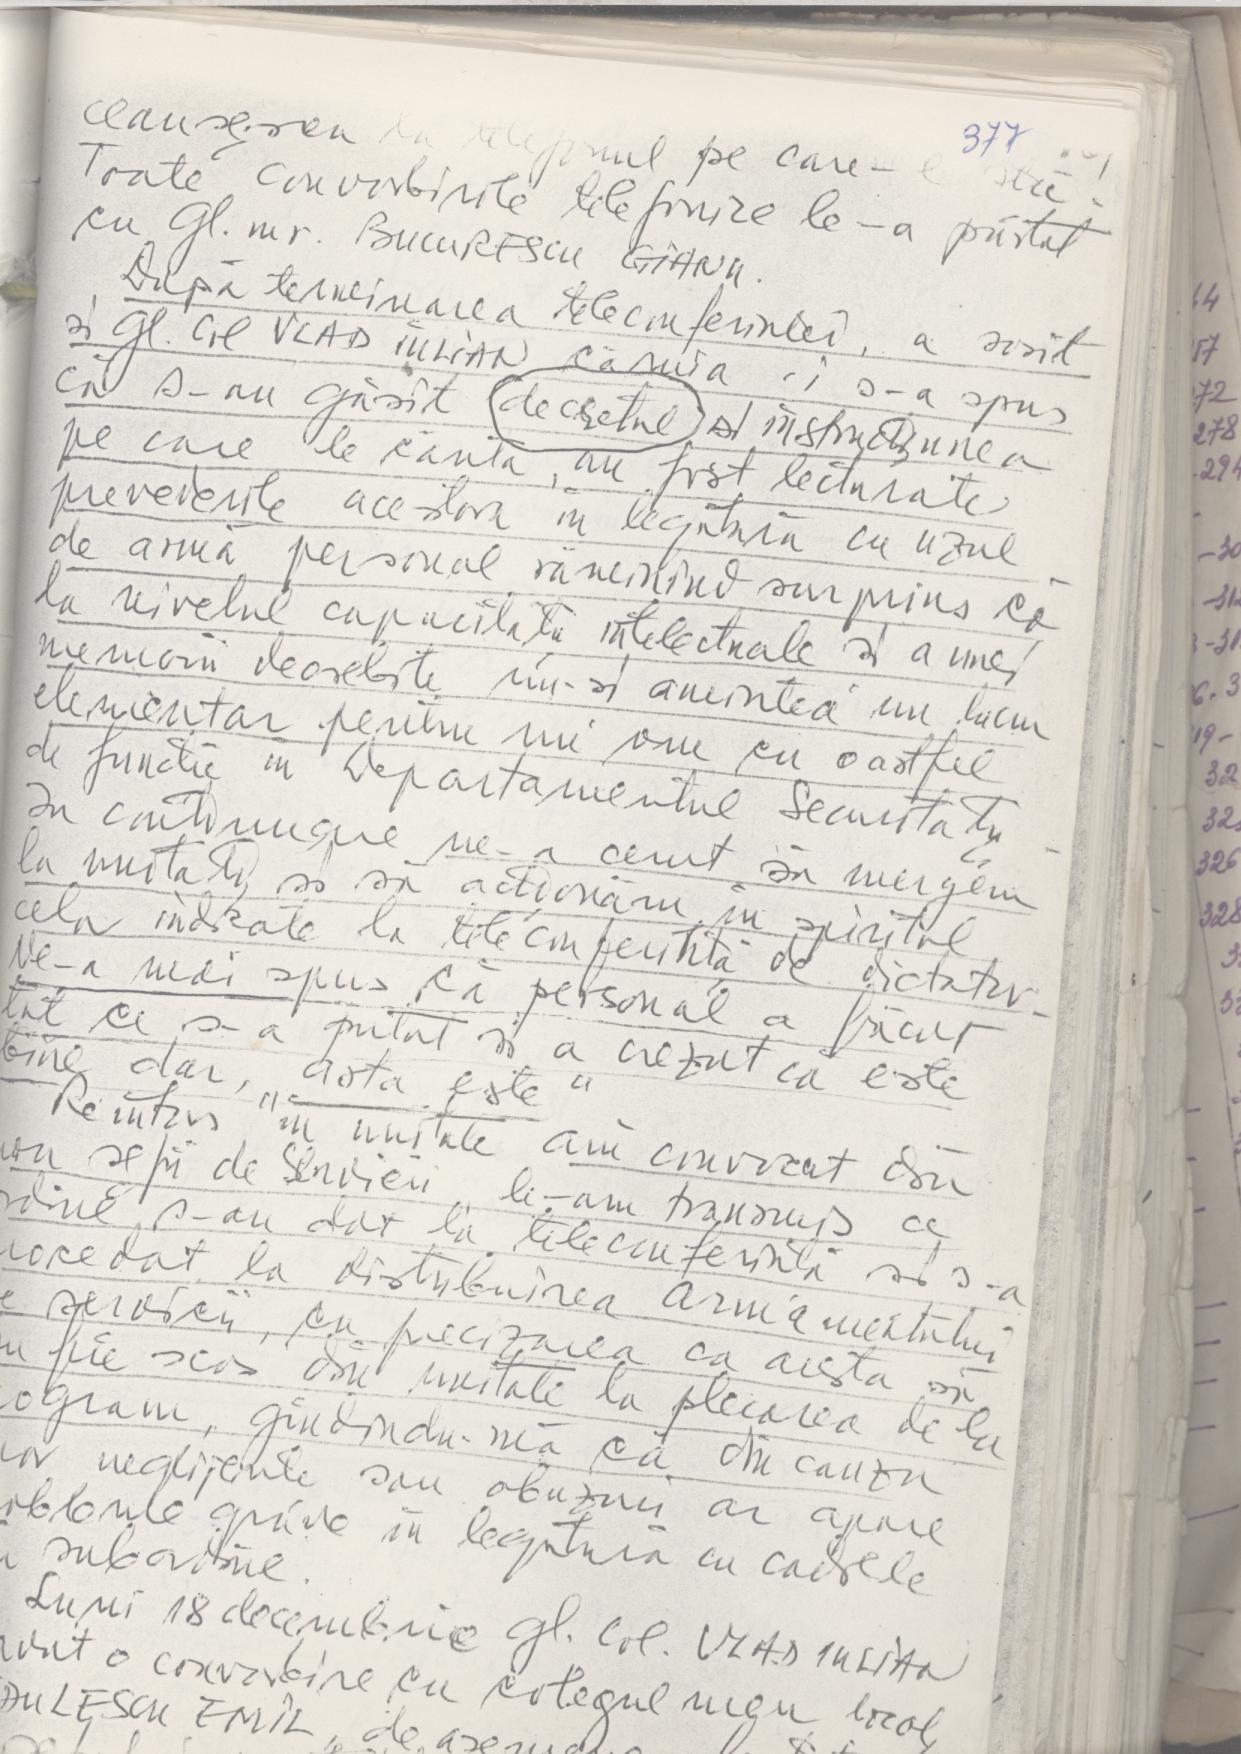 377
Ceaușescu la telefonul pe care-
Toate convorbirile telefonice le-a purtat
cu Gl. mr. BUCURESCU GIANU.
După terminarea teleconferinței, a sosit
și Gl. Col VLAD IULIAN căruia i s-a spus
că s-au găsit decretul și instrucțiunea
pe care le căuta, au fost lecturate
prevederile acestora în legătură cu uzul
de armă personal rămînînd surprins că
la nivelul capacității intelectuale și a unei
memorii deosebite nu-și amintea un lucru
elementar pentru mine om cu o astfel
de funcție în Departamentul Securității
În continuare ne-a cerut să mergem
la unități și să acționăm în spiritul
celor indicate la teleconferință de dictator.
Ne-a mai spus că personal a făcut
tot ce s-a putut și a crezut că este
bine dar, "asta este"
Reîntors în unitate am convocat din
nou șefii de Servicii, le-am transmis ce
ordine s-au dat la teleconferință și s-a
procedat la distribuirea armamentului
pe servicii, cu precizarea ca acesta să
nu fie scos din unitate la plecarea de la
program, gîndindu-mă că din cauza
unor neglijențe sau abuzuri ar apare
probleme grave în legătură cu cadrele
din subordine.
Luni 18 decembrie gl. col. VLAD IULIAN
avut o convorbire cu colegul meu locol
ULESCU EMIL, de asemenea
44
57
72
278
-294
-30
-312
32
326
328